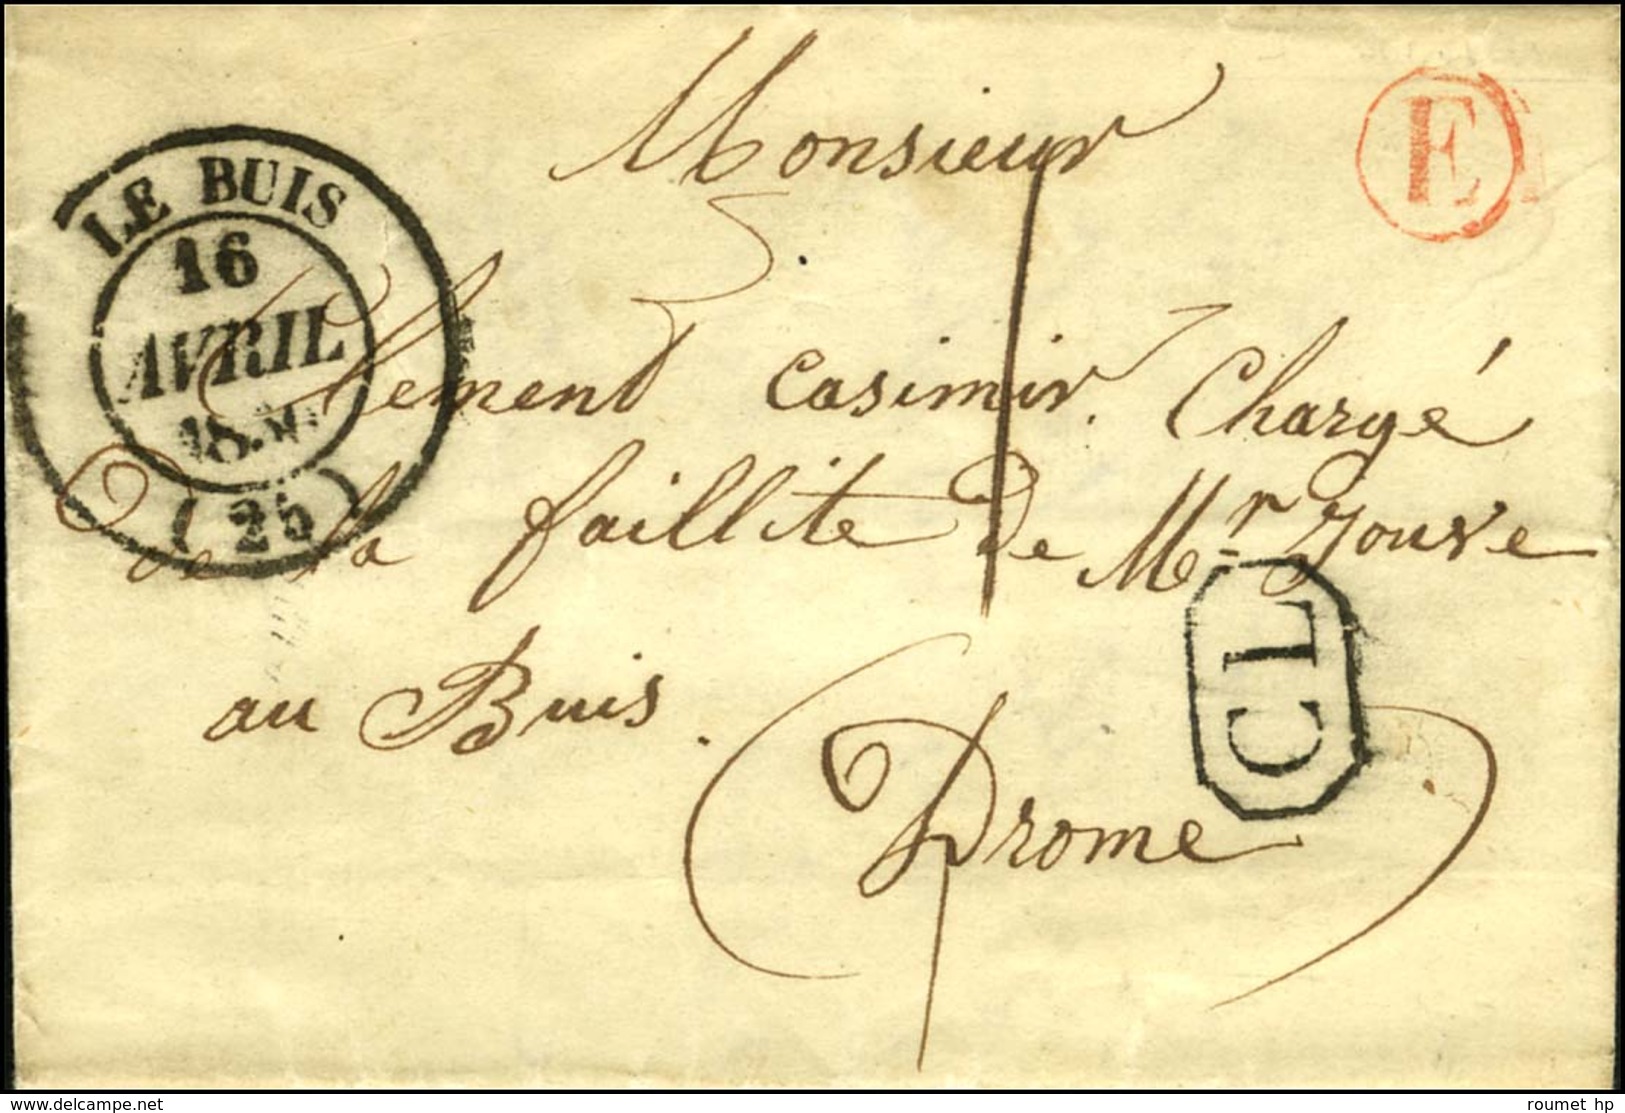 Monsieur
Clement Casimir Chargé
De la faillite De Mr Jouve
au Buis.
Drome
LE BUIS
16
AVRIL
(25)
E
CL
delcampe.net
roumet hp